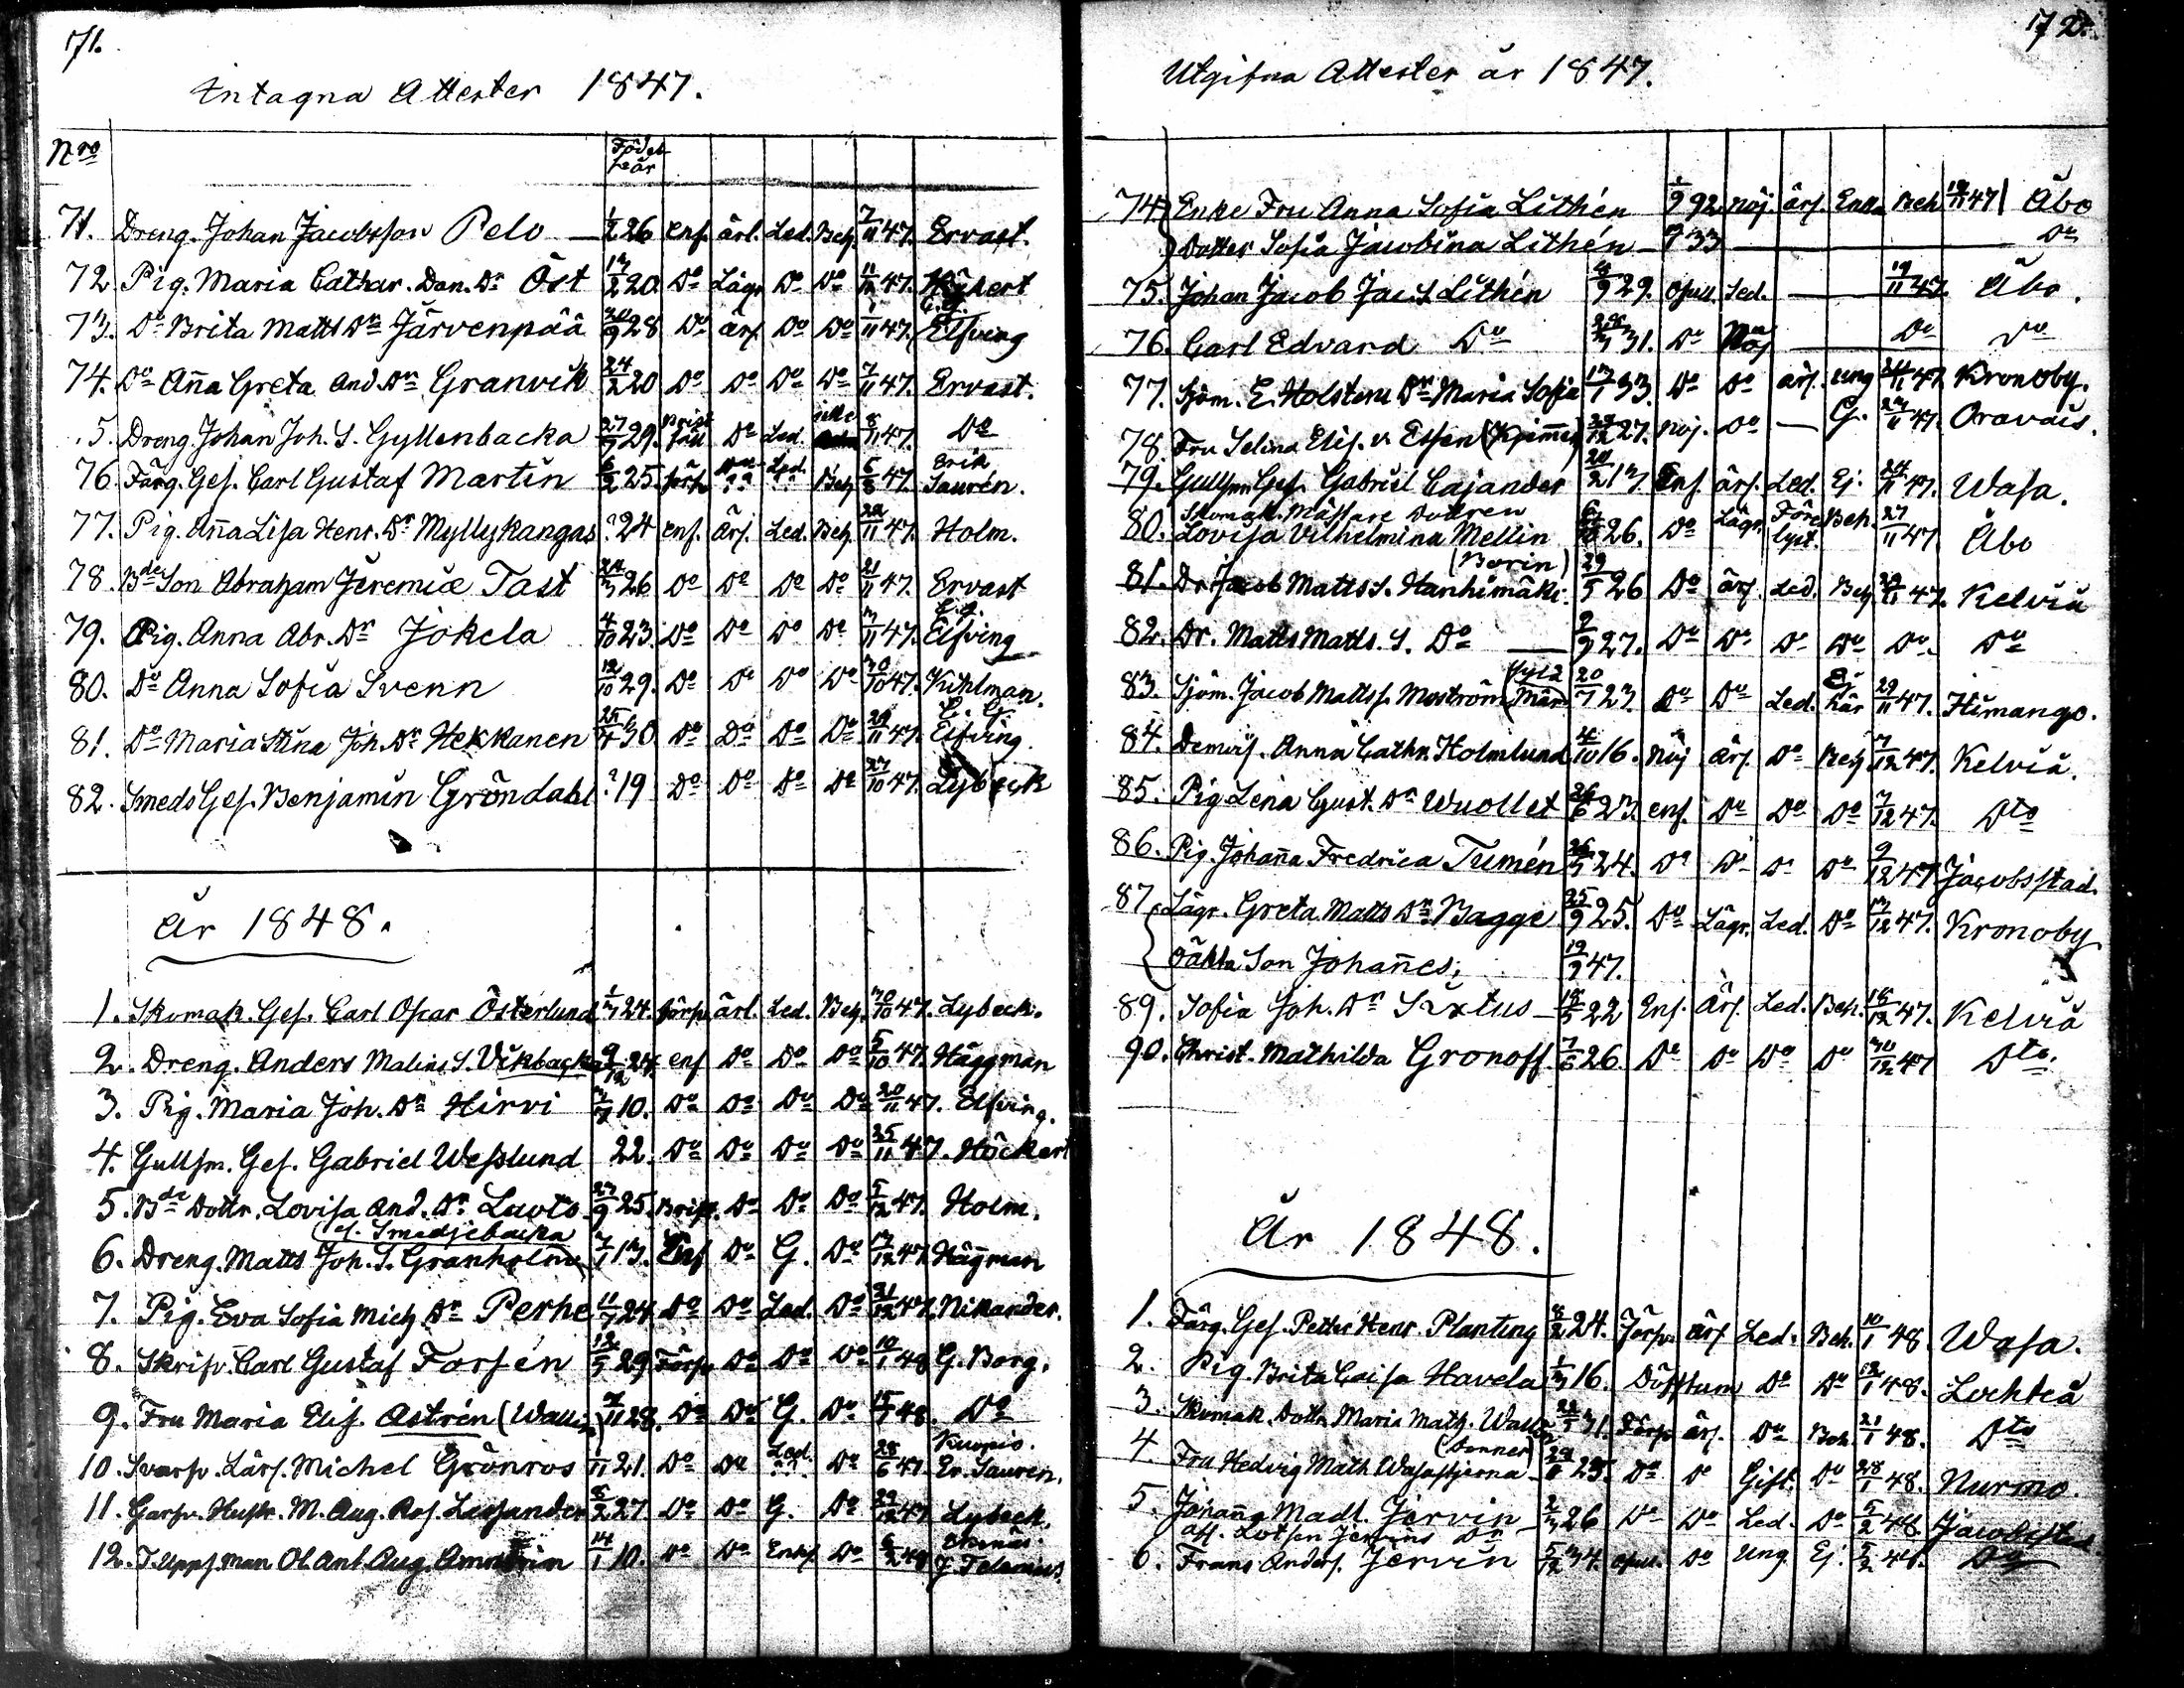 71.
Intagna Attester 1847.
Nro Födelseår
71. Dreng. Johan Jacobsson Pelo 1/2 26 enf. ärl. Led. Beh. 7/11 47. Ervast.
72. Pig. Maria Cathar. Dan. Dr Öst 13/2 20 Do Lägr. Do Do 11/12 47.
73. Do Brita Matts Dr Järvenpää 28 Do ärf. Do Do 1/11 47. Elfving
74. Do Aña Greta And. Dr Granvik 24/2 20 Do Do Do Do 7/11 47. Ervast.
5. Dreng. Johan Joh. S. Gyllenbacka 27/ 29. Do Led. 8/11 47. Do
76. Färg. Gef. Carl Gustaf Martin 6/2 25. Led. Beh 6/8 47. Erik Saurén.
77. Pig. Aña Lisa Henr. Dr Myllykangas ? 24 enf. ärf. Led. Beh 22/11 47. Holm.
78. Bde Son Abraham Jeremiæ Tast 22/3 26 Do Do Do Do 21/11 47. Ervast
79. Pig. Anna Abr. Dr Jokela 4/10 23. Do Do Do Do 3/11 47. E. G. Elfving
80. Do Anna Sofia Svenn 12/10 29. Do Do Do Do 30/10 47. Kihlman.
81. Do Maria Stina Joh. Dr Hekkanen 25/4 30 Do Do Do Do 29/11 47. E. G. Elfving
82. Smeds Gef. Benjamin Gröndahl ? 19 Do Do Do Do 27/10 47. Lybeck
År 1848.
1. Skomak. Gef. Carl Oscar Österlund 1/3 24. förfv. ärl. Led. Beh. 30/10 47. Lybeck.
2. Dreng. Anders Malins S. Vikbacka 9/12 24. enf Do Do Do 5/10 47. Häggman
3. Pig. Maria Joh. Dr Hirvi 10. Do Do Do Do 20/11 47. Elfving.
4. Gullsm. Gef. Gabriel Wesslund 22. Do Do Do Do 25/11 47. Höckert
5. Bde Dottr. Lovisa And. Dr Lavto 27/9 25. Do Do Do 5/12 47. Holm.
(ef. Smedjebacka
6. Dreng. Matts Joh. S. Granholm 13. Enf Do G. Do 13/12 47. Hägman
7. Pig. Eva Sofia Mich Dr Perhe 11/7 24. Do Do Led. Do 21/12 47. Nikander.
8. Skrifv. Carl Gustaf Forsén 12/5 29 Förfv Do Do Do 10/1 48 G. Borg.
9. Fru Maria Elis. Astrén 28. Do Do G. Do 15/ 48. Do
10. Svarfv. Lärl. Michel Grönros 21. Do Do Led. Do 28/6 47. Kuopio. Er. Sauren.
11. Garfv. Hustr. M. Aug. Ros. 8/2 27. Do Do G. Do 29/12 47 Lybeck.
12. T. Uppf. man Ol. Ant. Aug. 14/1 10. Do Do Do
172.
Utgifna Attester år 1847.
74. Enke Fru Anna Sofia Lithén 1/9 92 Nöj. ärf. Enka Beh 19/11 47 Åbo
Dotter Sofia Jacobina Lithén 33 Do
75. Johan Jacob Jac. S. Lithén 29. Led. 19/11 47. Åbo.
76. Carl Edvard Do 31. Do Nöj Do Do
77. Sjöm. E. Holstens Dr Maria Sofia 13/1 33. Do Do ärf. ung 47 Kronoby.
78. Fru Selina Elis. v. Essen 27. Nöj. Do G. 23/11 47. Oravais.
79. Gullsm Gef. Gabriel Cajander 20/2 13. Enf. ärf. Led. Ej. 24/11 47. Wasa.
80. Skomak. Mästare Dottren Lovisa Vilhelmina Mellin 26. Do Lägr. Beh. 27/11 47 Åbo
(Borin)
81. Dr. Jacob Matts S. Hanhimäki 29/5 26 Do ärf. Led. Beh 47. Kelviå
82. Dr. Matts Matts. S. Do 2/9 27. Do Do Do Do Do Do
83. Sjöm. Jacob Matts S. Moström 20/7 23. Do Do Led. Ej här 29/11 47. Himango.
84. Demois. Anna Cathr. Holmlund 4/10 16. Nöj ärf. Do Beh 7/12 47. Kelviå.
85. Pig Lena Gust. Dr Wuollet 26/6 23. enf. Do Do Do 7/12 47. Dto
86. Pig. Johaña Fredrica Tumén 26/5 24. Do Do Do Do 9/12 47 Jacobsstad.
87. Lägr. Greta Matts Dr Bagge 25/9 25. Do Lägr. Led. Do 13/12 47. Kronoby
oäkta Son Johañes; 19/9 47.
89. Sofia Joh. Dr Sixtus 18/5 22 Enf. ärf. Led. Beh. 18/12 47. Kelviå
90. Christ. Mathilda Gronoff. 7/6 26. Do Do Do Do 30/12 47 Dto.
År 1848.
1. Färg. Gef. Petter Henr. Planting 8/2 24. Förfv. ärf. Led. Beh. 10/1 48. Wasa.
2. Pig. Brita Caisa Havela 1/3 16. Döfstum Do Do 12/1 48. Lochteå
3. Skomak. Dottr Maria Math. 31. Förfv ärf. Do Beh. 21/1 48. Dto
(Donner)
4. Fru Hedvig Math. Wasastjerna 25. Do Do Gift. Do 28/1 48. Nurmo.
5. Johaña Madl. Jervin 2/3 26 Do Do Led. Do 5/2 48. Jacobsstad
aff. Lotsen Jervins Dr
6. Frans Anders. Jervin 5/12 34. Do Ung Ej. 5/2 48. Do